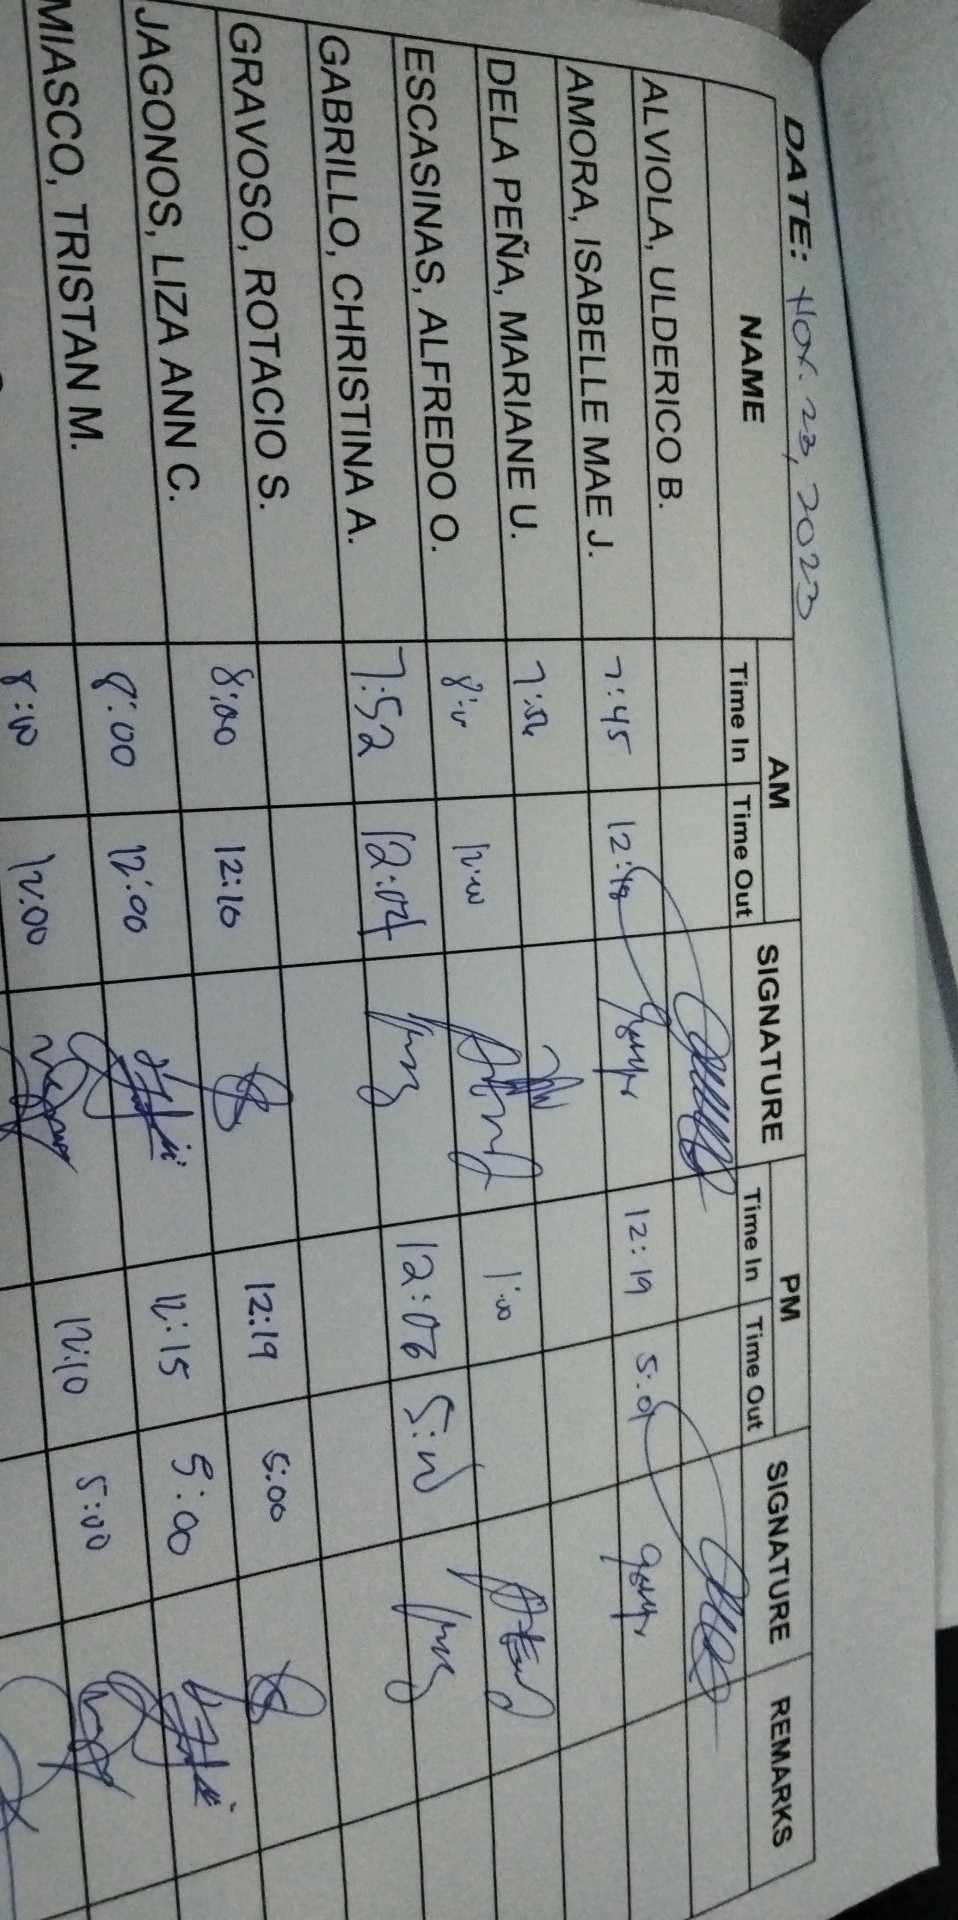 DATE: Nov. 23, 2023
NAME AM SIGNATURE PM SIGNATURE REMARKS
Time In Time Out Time In Time Out
ALVIOLA, ULDERICO B.
AMORA, ISABELLE MAE J. 7:45 12:18 12:19 5:01
DELA PEÑA, MARIANE U. 7:56
ESCASINAS, ALFREDO O. 8:00 12:00 1:00
GABRILLO, CHRISTINA A. 7:52 12:04 12:06 5:00
GRAVOSO, ROTACIO S.
JAGONOS, LIZA ANN C. 8:00 12:10 12:19 5:00
MIASCO, TRISTAN M. 8:00 12:00 12:15 5:00
8:00 12:00 12:10 5:00